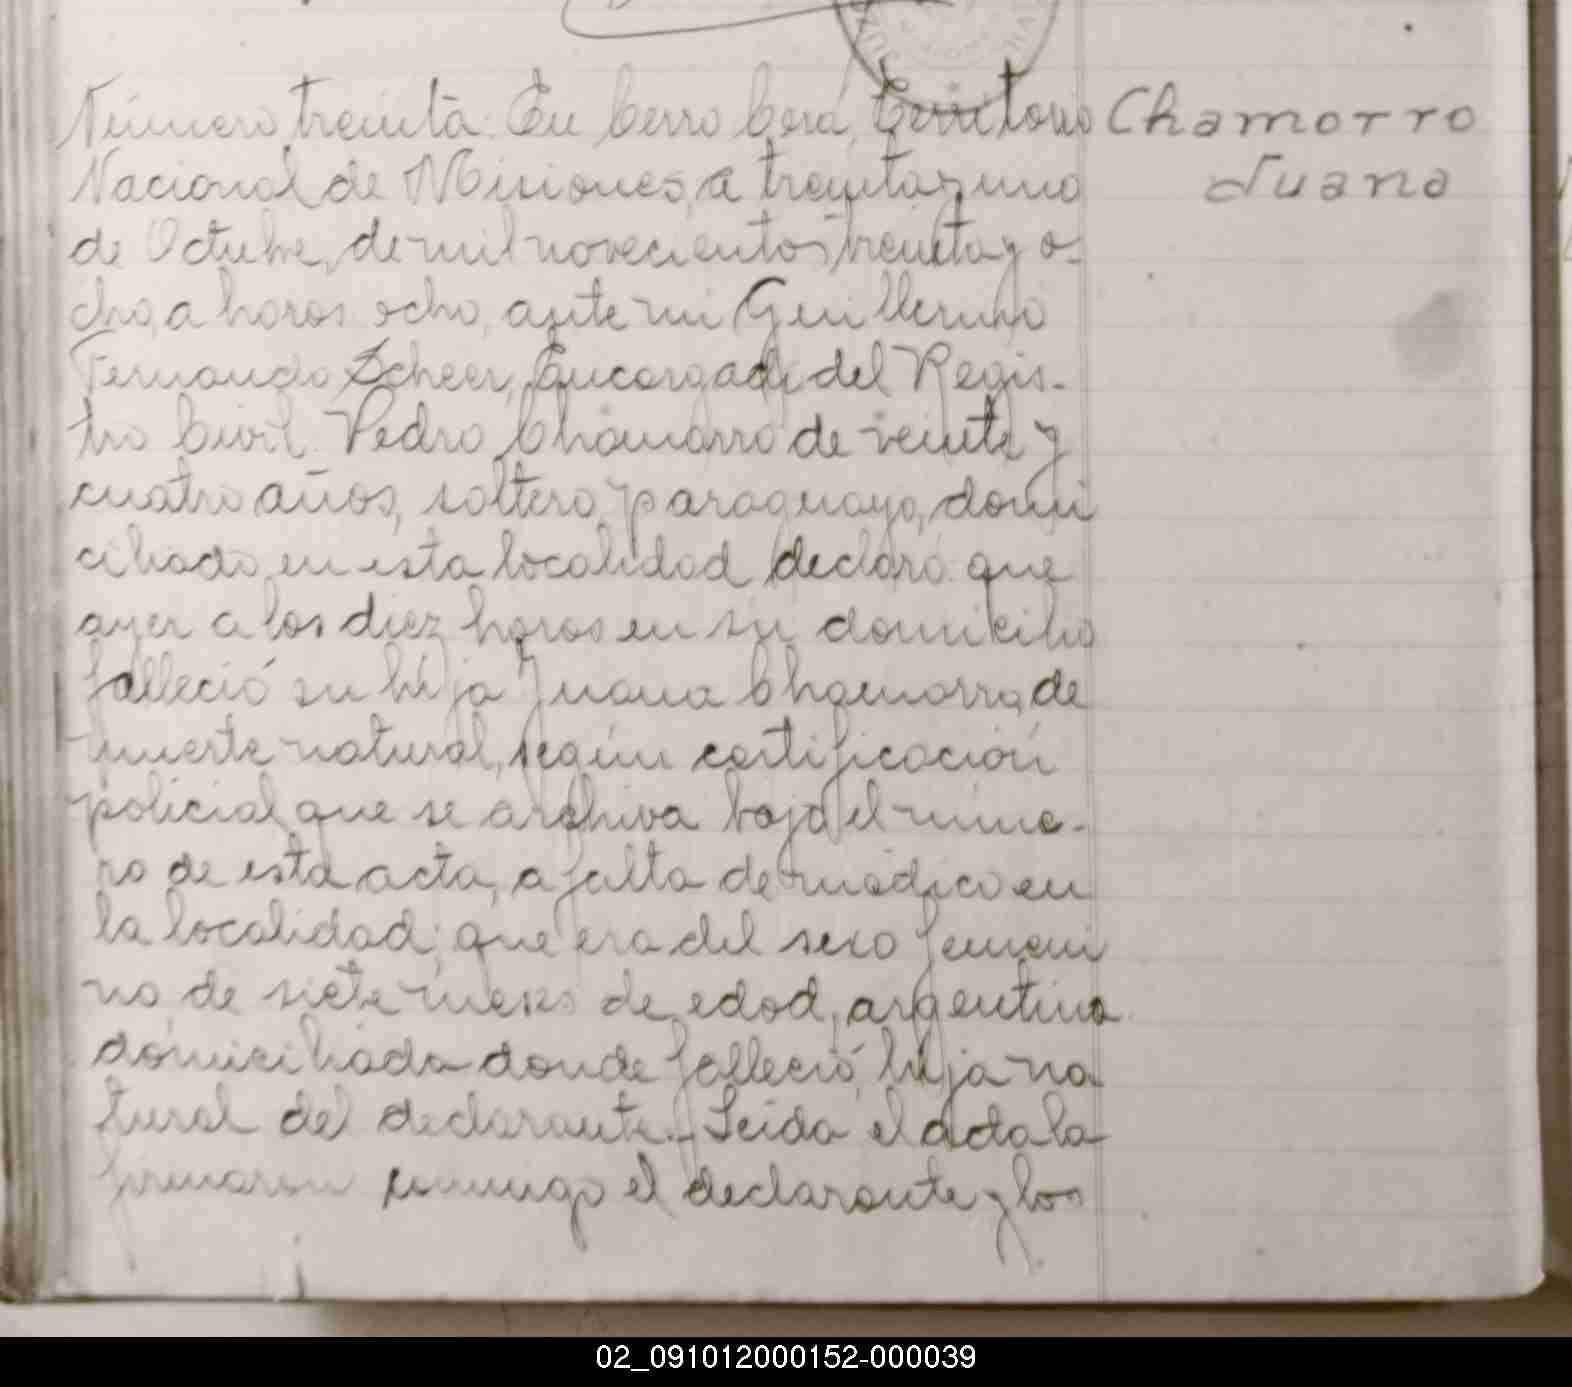 Número treinta. En Cerro Corá, Territorio
Chamorro
Juana
Nacional de Misiones, a treinta y uno
de Octubre, de mil novecientos treinta y o-
cho, a horas ocho, ante mi Guillermo
Fernando Scheer, Encargado del Regis-
tro Civil. Pedro Chamorro de veinte y
cuatro años, soltero, paraguayo, domi
ciliado en esta localidad declaró que
ayer a las diez horas en su domicilio
falleció su hija Juana Chamorro, de
muerte natural, según certificación
policial que se archiva bajo el núme-
ro de esta acta, a falta de médico en
la localidad; que era del sexo femeni
no, de siete meses de edad, argentina
domiciliada donde falleció, hija na
tural del declarante. Leida el acta la
firmaron conmigo el declarante y los
02_091012000152-000039